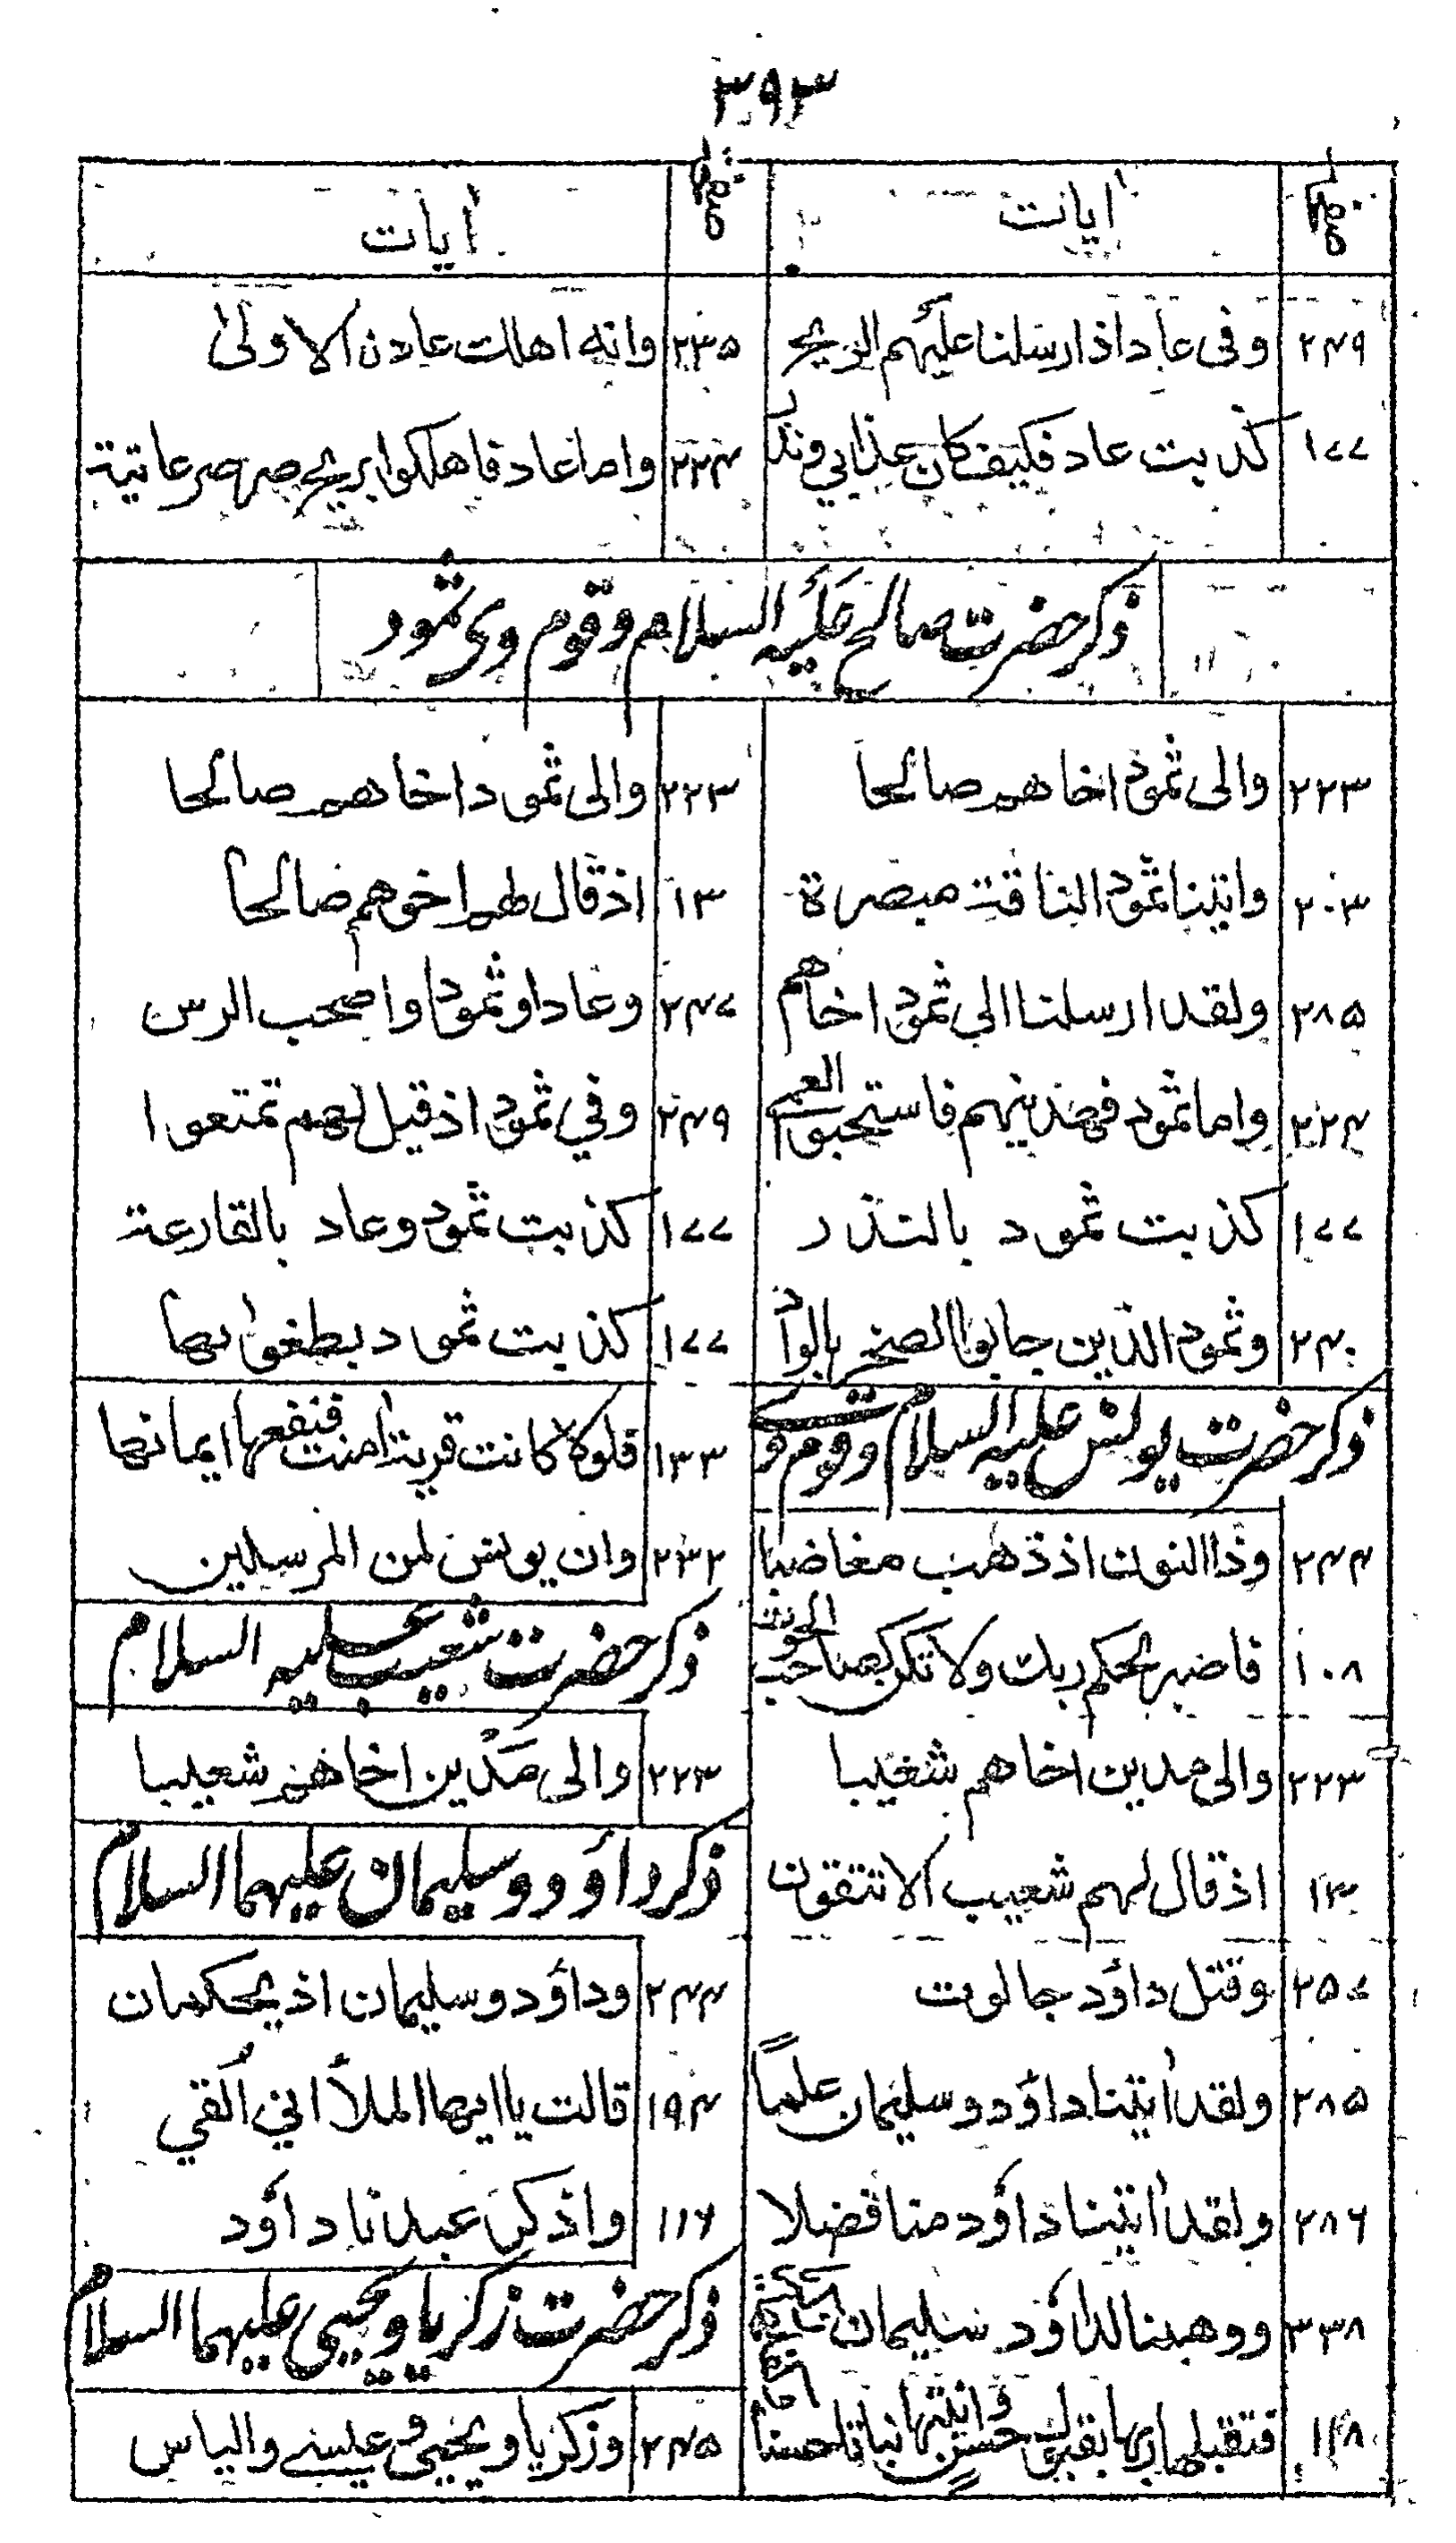 ۳۹۳
صفحہ ایات صفحہ ایات
۲۴۹ وفی عاد اذ ارسلنا علیهم الریح ۲۳۵ وانه اهلک عادن الاولیٰ
۱۷۷ کذبت عاد فکیف کان عذابی ونذر ۲۲۴ واما عاد فاهلکوا بریح صرصر عاتیة
ذکر حضرت صالح علیہ السلام و قوم وی ثمود
۲۲۳ والی ثمود اخاهم صالحا ۲۲۳ والی ثمود اخاهم صالحا
۲۰۳ واتینا ثمود الناقة مبصرة ۱۳ اذ قال لهم اخوهم صالحا
۲۸۵ ولقد ارسلنا الی ثمود اخاهم ۲۴۷ وعادا وثمودا واصحب الرس
۲۲۴ واما ثمود فهدینهم فاستحبوا العمی ۲۴۹ وفی ثمود اذ قیل لهم تمتعوا
۱۷۷ کذبت ثمود بالنذر ۱۷۷ کذبت ثمود وعاد بالقارعة
۲۴۰ وثمود الذین جابوا الصخر بالواد ۱۷۷ کذبت ثمود بطغوٰىها
ذکر حضرت یونس علیہ السلام و قوم وے ۱۳۳ فلولا کانت قریة اٰمنت فنفعها ایمانها
۲۴۴ وذا النون اذ ذهب مغاضبا ۲۳۲ وان یونس لمن المرسلین
۱۰۸ فاصبر لحکم ربک ولا تکن کصاحب الحوت ذکر حضرت شعیب علیہ السلام
۲۲۳ والی مدین اخاهم شعیبا ۲۲۳ والی مدین اخاهم شعیبا
۱۳ اذ قال لهم شعیب الا تتقون ذکر داؤد و سلیمان علیہما السلام
۲۵۷ وقتل داؤد جالوت ۲۴۴ وداؤد وسلیمان اذ یحکمان
۲۸۵ ولقد اٰتینا داؤد وسلیمان علماً ۱۹۴ قالت یا ایها الملأ انی اُلقی
۲۸۶ ولقد اٰتینا داؤد منا فضلا ۱۱۶ واذکر عبدنا داؤد
۳۳۸ ووهبنا لداؤد سلیمان ذکر حضرت زکریا و یحییٰ علیہما السلام
۱۴۸ فتقبلها ربها بقبول حسن وانبتها نباتا حسنا ۲۴۵ وزکریا ویحییٰ وعیسے والیاس